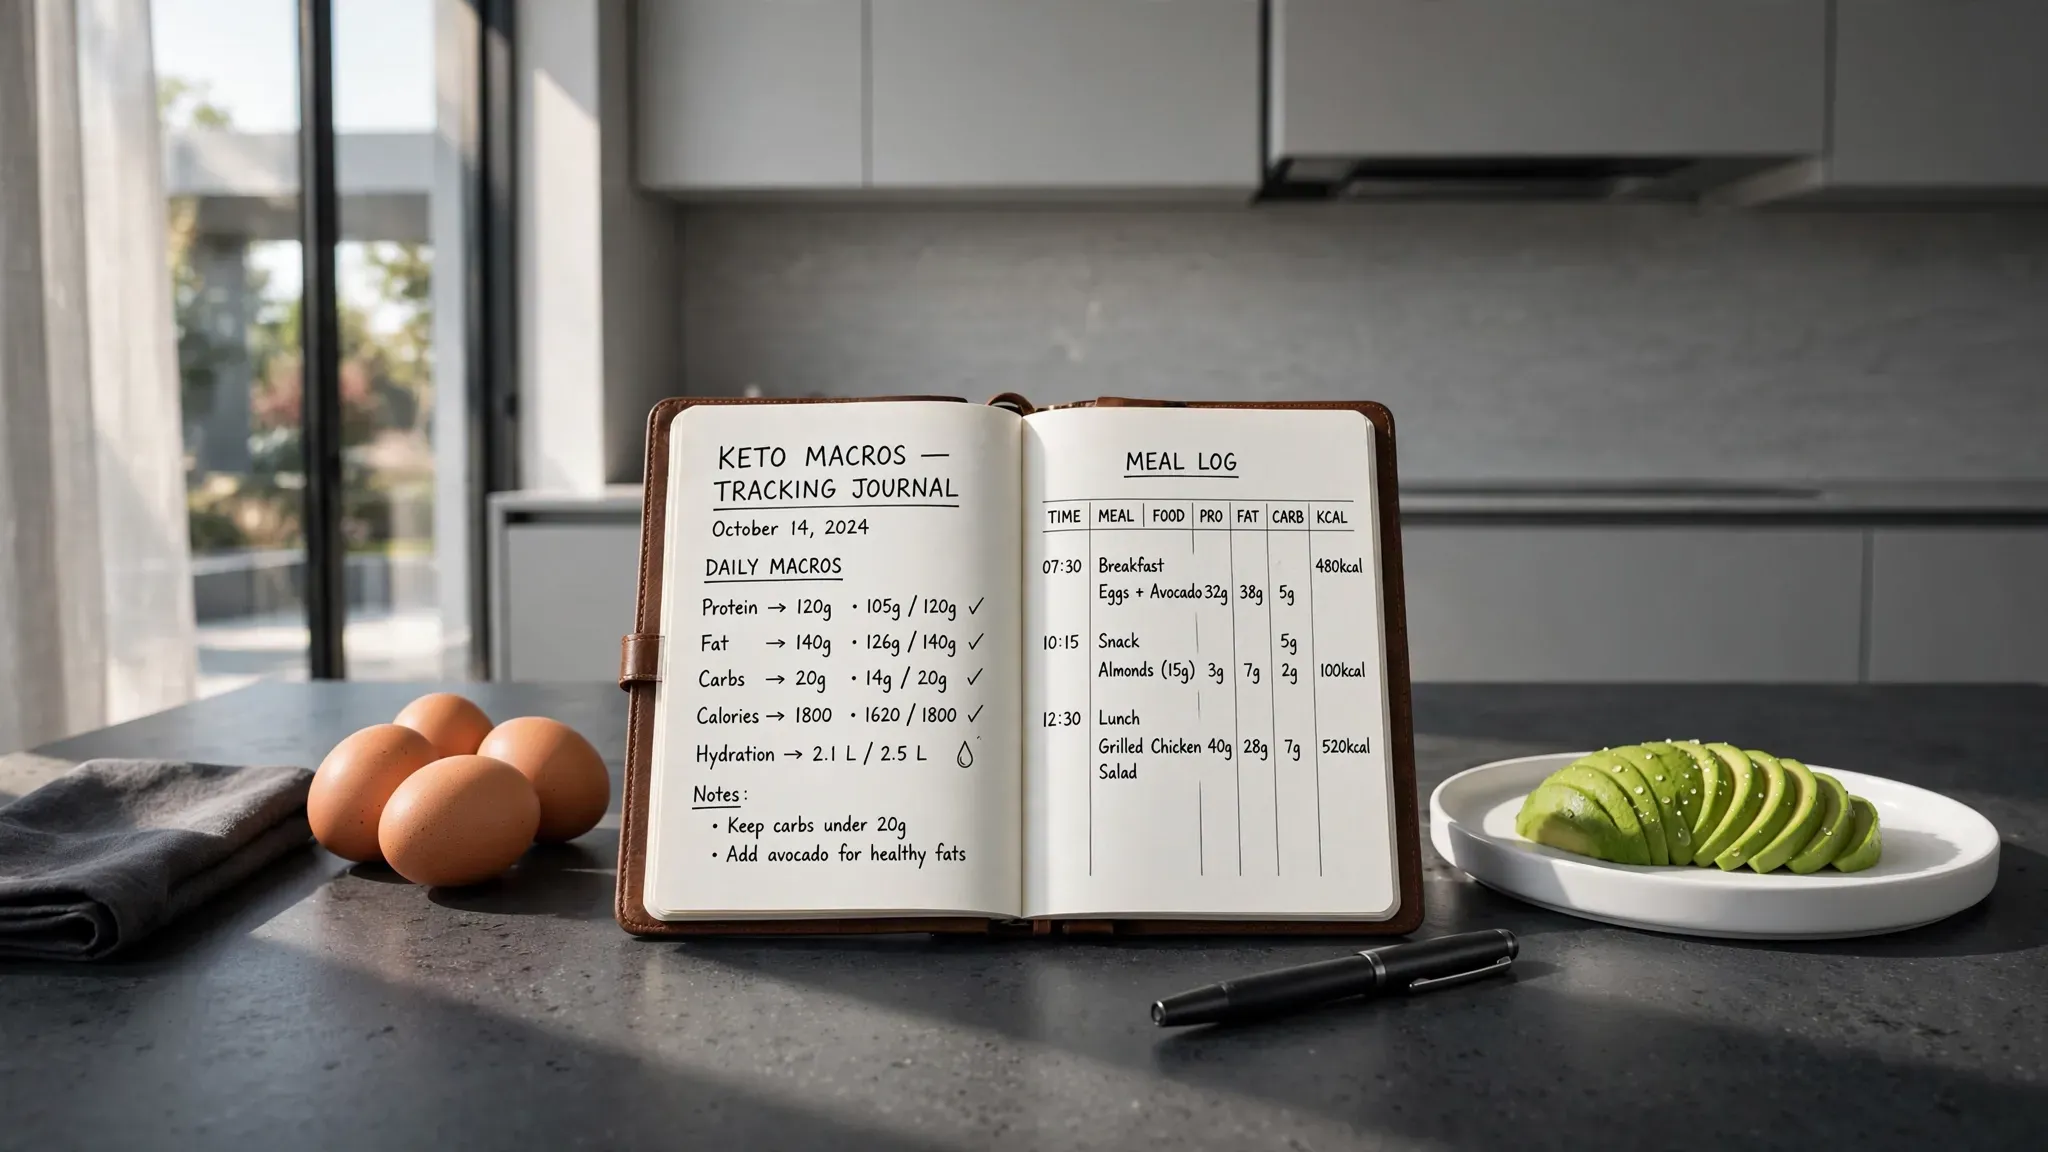 KETO MACROS —
TRACKING JOURNAL
October 14, 2024
DAILY MACROS
Protein → 120g • 105g / 120g ✓
Fat → 140g • 126g / 140g ✓
Carbs → 20g • 14g / 20g ✓
Calories → 1800 • 1620 / 1800 ✓
Hydration → 2.1 L / 2.5 L
Notes:
• Keep carbs under 20g
• Add avocado for healthy fats
MEAL LOG
TIME MEAL FOOD PRO FAT CARB KCAL
07:30 Breakfast 480kcal
Eggs + Avocado 32g 38g 5g
10:15 Snack 5g
Almonds (15g) 3g 7g 2g 100kcal
12:30 Lunch
Grilled Chicken 40g 28g 7g 520kcal
Salad